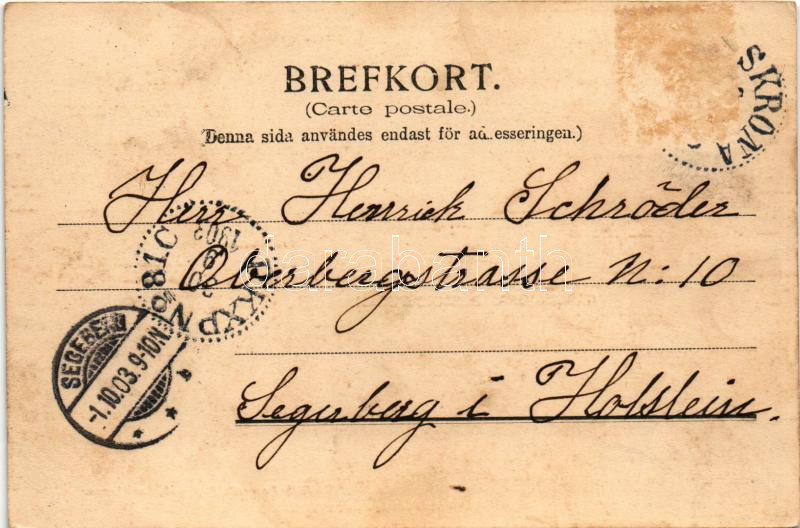 BREFKORT.
(Carte postale.)
(Denna sida användes endast för ad..esseringen.)
SKRONA
Herr Henrick Schröder
Oberbergstrasse N: 10
Segerberg i Holstein.
PKXP No 81C
1903
SEGEBERG
-1.10.03.9-10N
darabanth